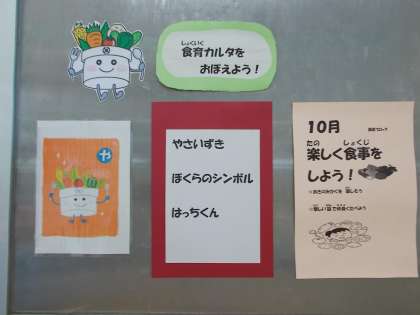 しょくいく
食育カルタを
おぼえよう！
や
やさいずき
ぼくらのシンボル
はっちくん
10月
たの しょくじ
楽しく食事を
しよう！